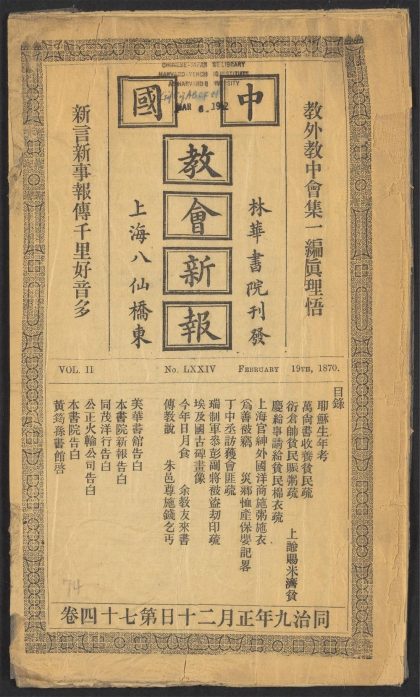 CHINESE-JAPANESE LIBRARY
HARVARD-YENCHING INSTITUTE
HARVARD UNIVERSITY
MAR 6 1952
中國
教會新報
教外教中會集一編眞理悟
林華書院刊發
上海八仙橋東
新言新事報傳千里好音多
VOL. II
No. LXXIV
FEBRUARY 19TH, 1870.
目錄
耶穌生年考
萬尚書收養貧民疏
衍倉帥貧民賑粥疏 上諭賜米濟貧
慶給事請給貧民棉衣疏
上海官紳外國洋商施粥施衣
爲善被竊 災鄉恤產保嬰記畧
丁中丞訪獲會匪疏
瑞制軍叅彭副將被盜刧印疏
埃及國古碑畫像
今年日月食 余教友來書
傳教說 朱邑尊施錢乞丐
美華書館告白
本書院新報告白
同茂洋行告白
公正火輪公司告白
本書院告白
黃筠孫書館啓
74
同治九年正月二十日第七十四卷